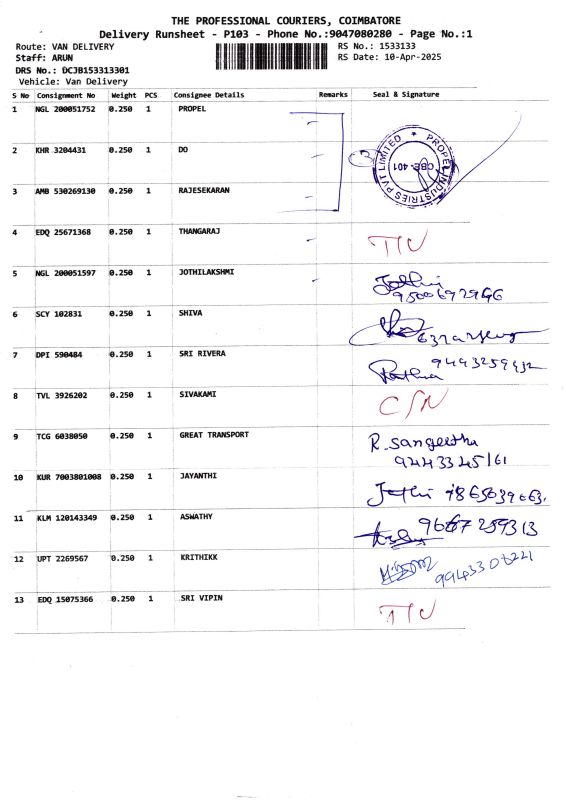 THE PROFESSIONAL COURIERS, COIMBATORE
Delivery Runsheet - P103 - Phone No.:9047080280 - Page No.:1
Route: VAN DELIVERY RS No.: 1533133
Staff: ARUN RS Date: 10-Apr-2025
DRS No.: DCJB153313301
Vehicle: Van Delivery
S No Consignment No Weight PCS Consignee Details Remarks Seal & Signature
1 NGL 200051752 0.250 1 PROPEL
PROPEL INDUSTRIES PVT LIMITED
CBE- 401
2 KHR 3204431 0.250 1 DO
3 AMB 530269130 0.250 1 RAJESEKARAN
4 EDQ 25671368 0.250 1 THANGARAJ
5 NGL 200051597 0.250 1 JOTHILAKSHMI Jothi
6 SCY 102831 0.250 1 SHIVA
7 DPI 590484 0.250 1 SRI RIVERA
8 TVL 3926202 0.250 1 SIVAKAMI C/N
9 TCG 6038050 0.250 1 GREAT TRANSPORT R. Sangeetha
9443345161
10 KUR 7003801008 0.250 1 JAYANTHI Jothi
11 KLM 120143349 0.250 1 ASWATHY
12 UPT 2269567 0.250 1 KRITHIKK
13 EDQ 15075366 0.250 1 SRI VIPIN